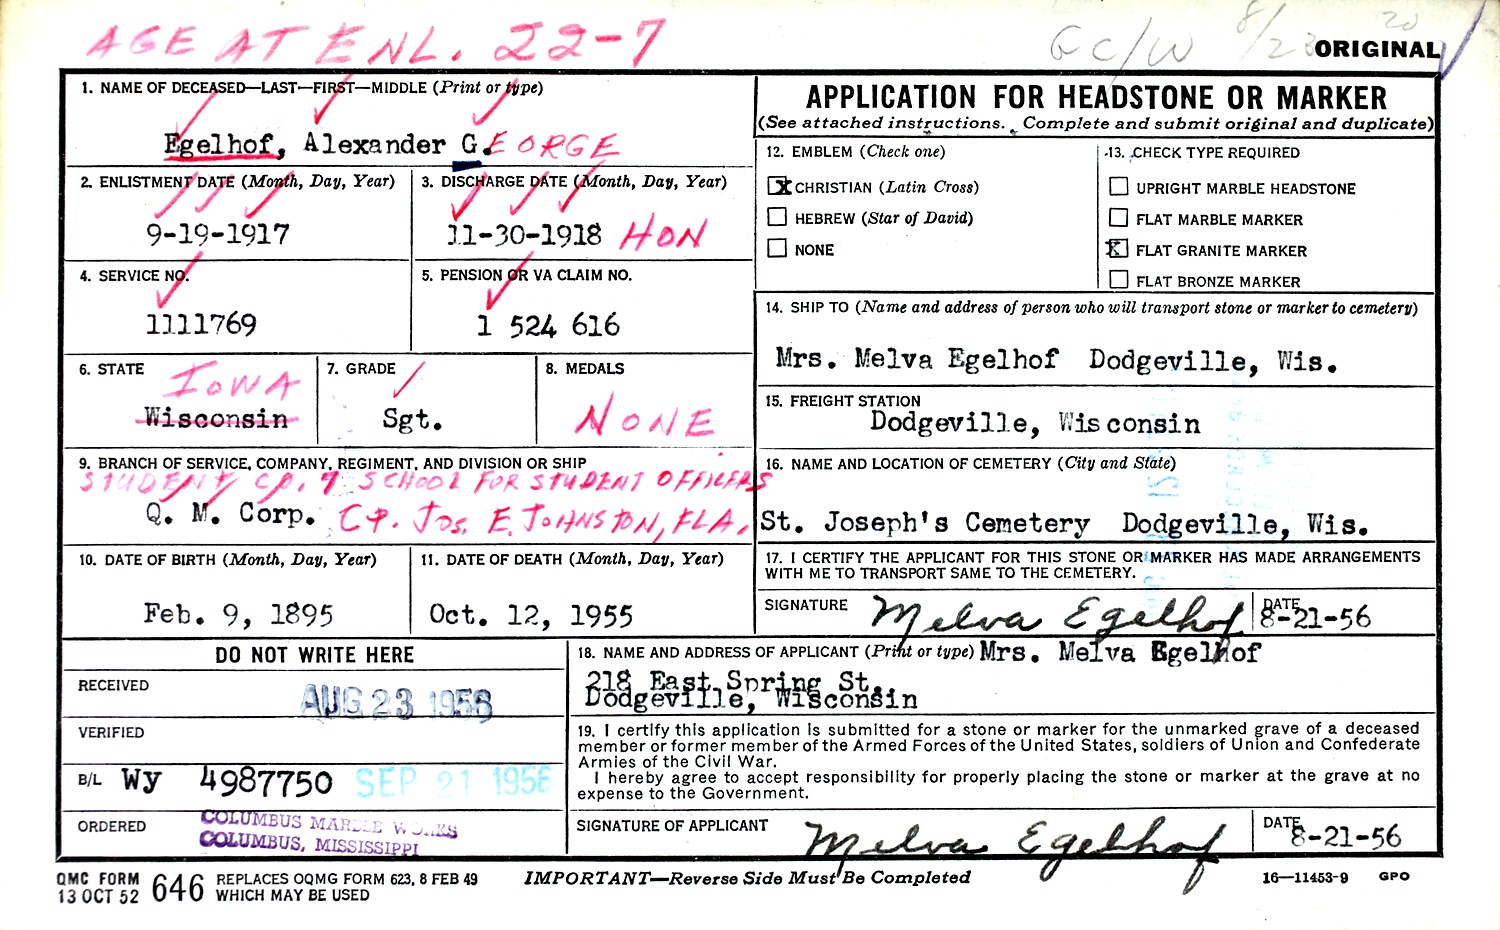 AGE AT ENL. 22-7
GC/W 8/23
ORIGINAL
1. NAME OF DECEASED—LAST—FIRST—MIDDLE (Print or type)
Egelhof, Alexander G.EORGE
2. ENLISTMENT DATE (Month, Day, Year)
9-19-1917
3. DISCHARGE DATE (Month, Day, Year)
11-30-1918 HON
4. SERVICE NO.
1111769
5. PENSION OR VA CLAIM NO.
1 524 616
6. STATE
IOWA
Wisconsin
7. GRADE
Sgt.
8. MEDALS
NONE
9. BRANCH OF SERVICE, COMPANY, REGIMENT, AND DIVISION OR SHIP
STUDENT CO. 7 SCHOOL FOR STUDENT OFFICERS
Q. M. Corp. CP. JOS. E. JOHNSTON, FLA.
10. DATE OF BIRTH (Month, Day, Year)
Feb. 9, 1895
11. DATE OF DEATH (Month, Day, Year)
Oct. 12, 1955
APPLICATION FOR HEADSTONE OR MARKER
(See attached instructions. Complete and submit original and duplicate)
12. EMBLEM (Check one)
X CHRISTIAN (Latin Cross)
HEBREW (Star of David)
NONE
13. CHECK TYPE REQUIRED
UPRIGHT MARBLE HEADSTONE
FLAT MARBLE MARKER
X FLAT GRANITE MARKER
FLAT BRONZE MARKER
14. SHIP TO (Name and address of person who will transport stone or marker to cemetery)
Mrs. Melva Egelhof Dodgeville, Wis.
15. FREIGHT STATION
Dodgeville, Wisconsin
16. NAME AND LOCATION OF CEMETERY (City and State)
St. Joseph's Cemetery Dodgeville, Wis.
17. I CERTIFY THE APPLICANT FOR THIS STONE OR MARKER HAS MADE ARRANGEMENTS
WITH ME TO TRANSPORT SAME TO THE CEMETERY.
SIGNATURE Melva Egelhof DATE 8-21-56
DO NOT WRITE HERE
RECEIVED AUG 23 1956
VERIFIED
B/L Wy 4987750 SEP 21 1956
ORDERED COLUMBUS MARBLE WORKS
COLUMBUS, MISSISSIPPI
18. NAME AND ADDRESS OF APPLICANT (Print or type) Mrs. Melva Egelhof
218 East Spring St.
Dodgeville, Wisconsin
19. I certify this application is submitted for a stone or marker for the unmarked grave of a deceased
member or former member of the Armed Forces of the United States, soldiers of Union and Confederate
Armies of the Civil War.
I hereby agree to accept responsibility for properly placing the stone or marker at the grave at no
expense to the Government.
SIGNATURE OF APPLICANT Melva Egelhof DATE 8-21-56
QMC FORM 646 REPLACES OQMG FORM 623, 8 FEB 49
13 OCT 52 WHICH MAY BE USED
IMPORTANT—Reverse Side Must Be Completed
16—11453-9 GPO